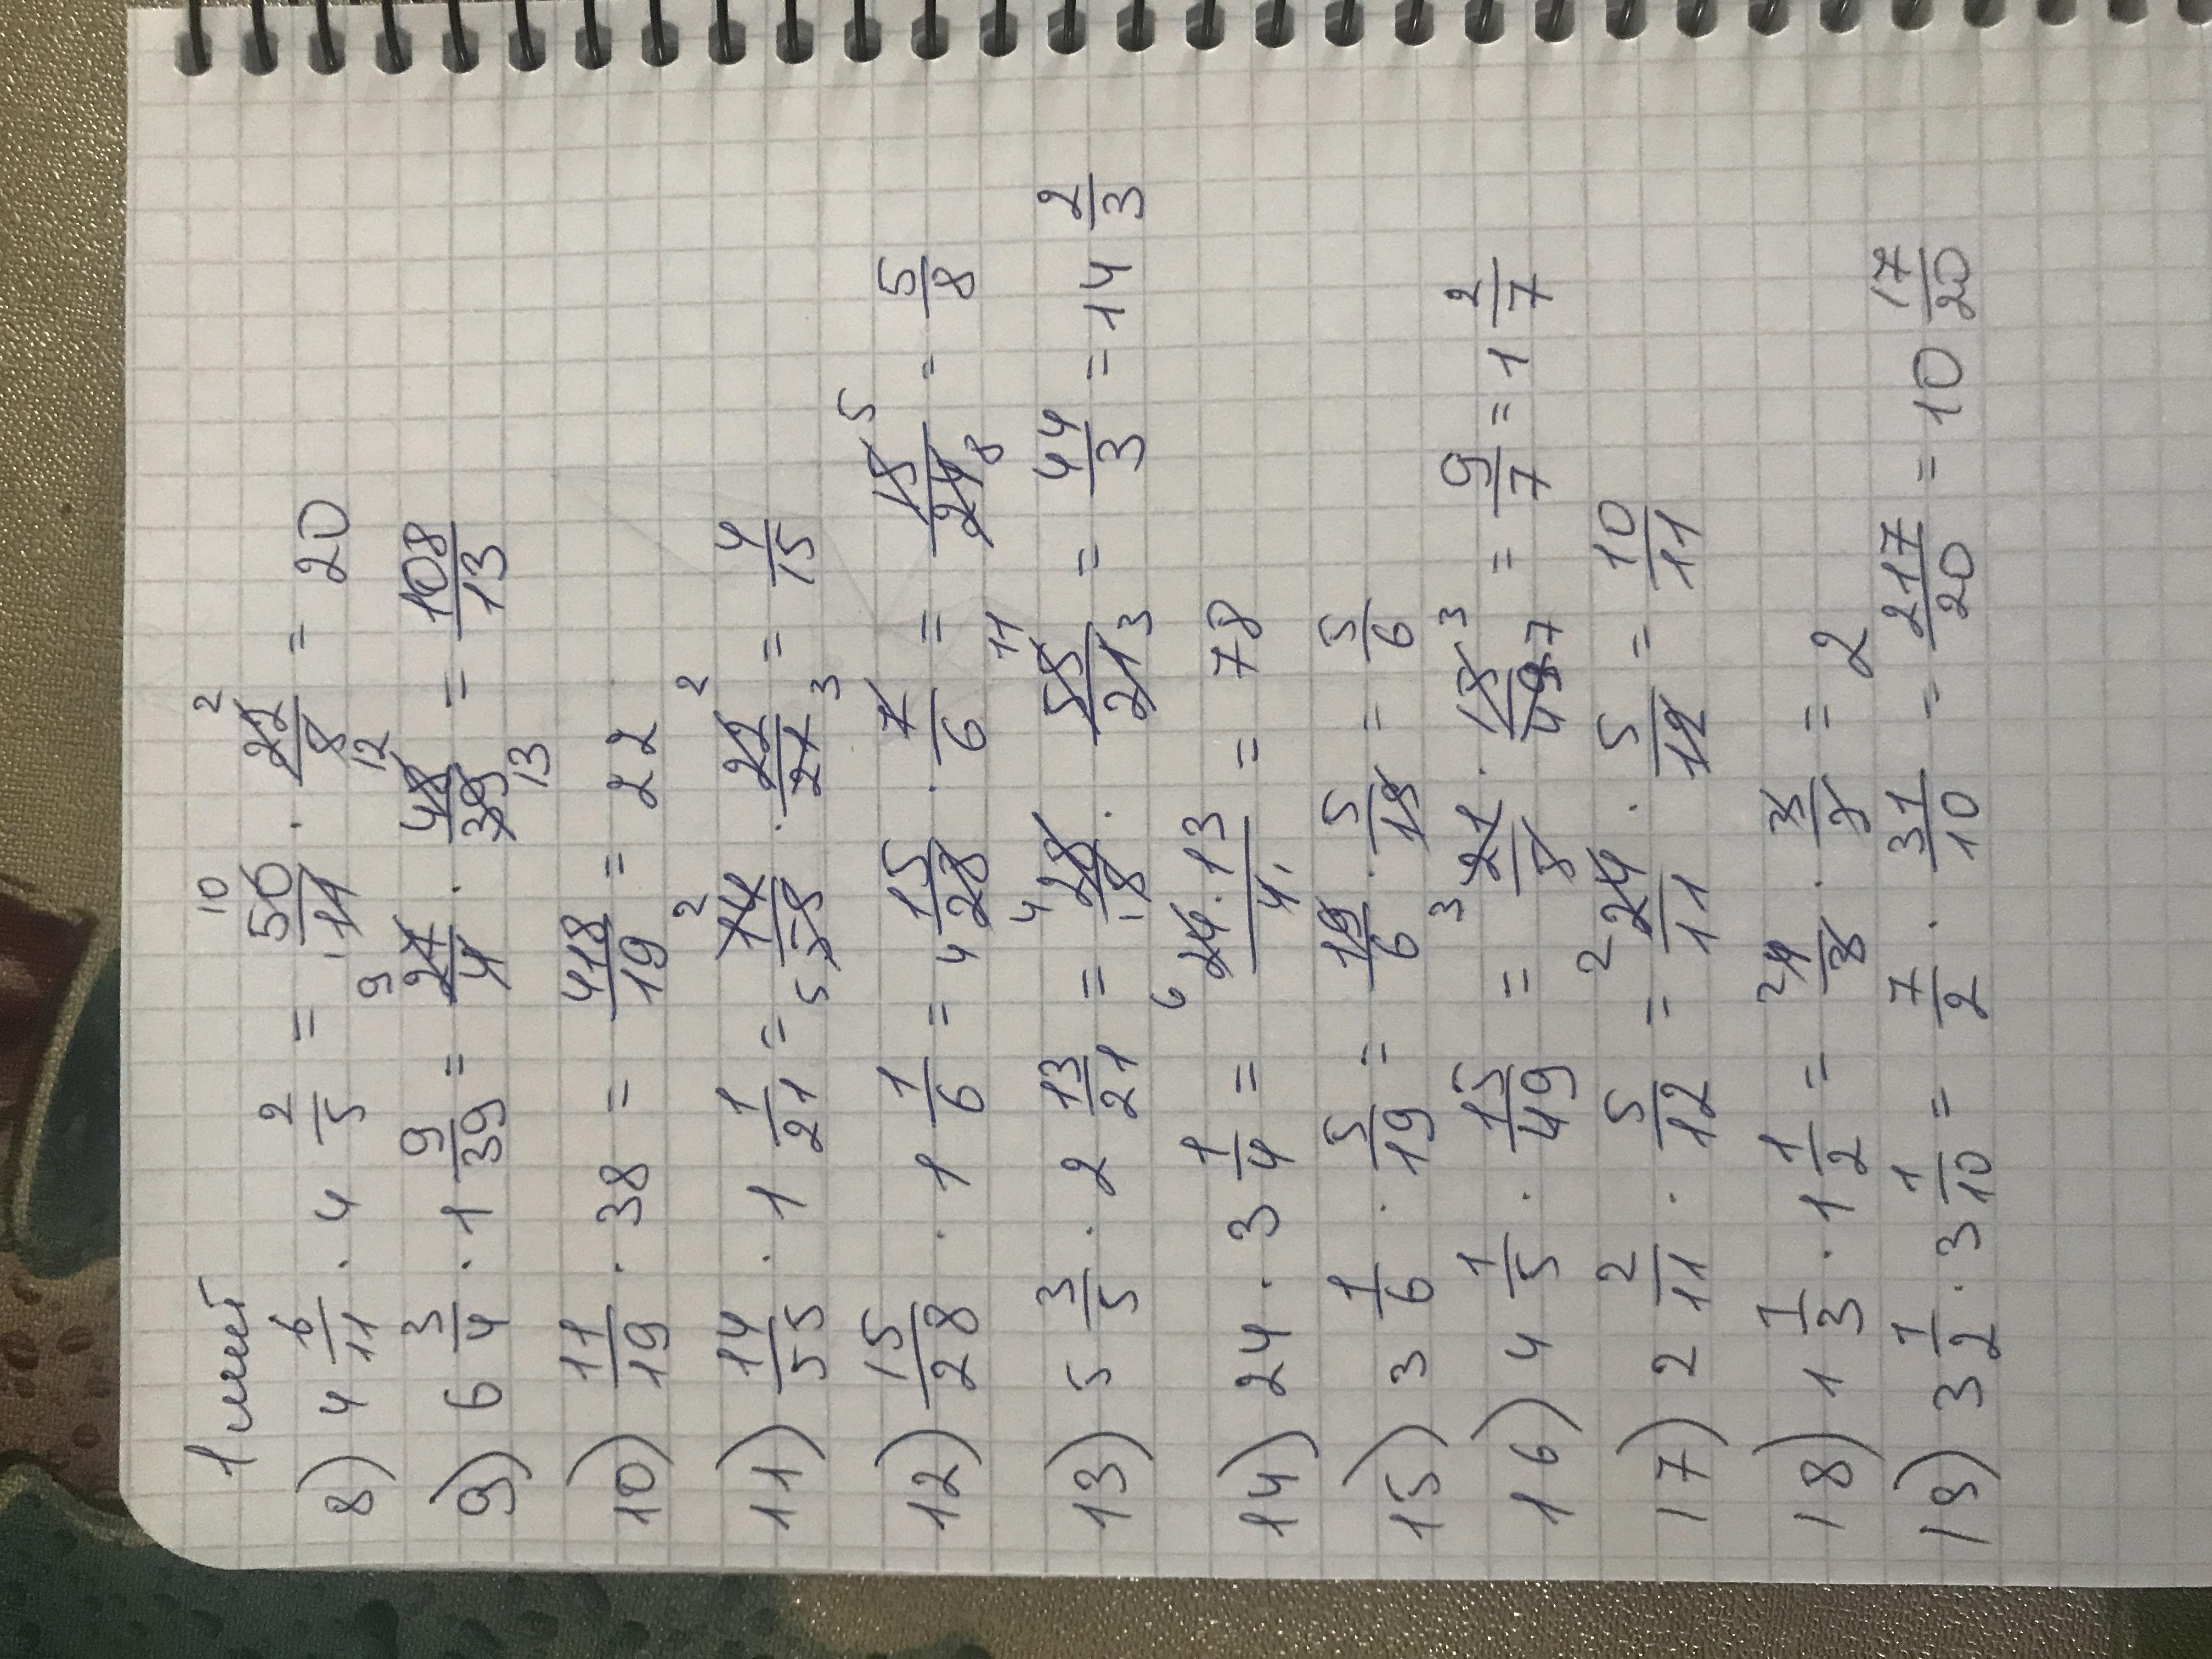 1 лист
8) 4 6/11 · 4 2/5 = 50/11 · 22/5 = 20 (10, 2)
9) 6 3/4 · 1 9/39 = 27/4 · 48/39 = 108/13 (9, 12, 13)
10) 11/19 · 38 = 418/19 = 22
11) 14/55 · 1 1/21 = 14/55 · 22/21 = 4/15 (2, 5, 2, 3)
12) 15/28 · 1 1/6 = 4 15/28 · 7/6 = 15/24 = 5/8 (5, 8)
13) 5 3/5 · 2 13/21 = 28/5 · 55/21 = 44/3 = 14 2/3 (4, 11, 3)
14) 24 · 3 1/4 = 24 · 13/4 = 78 (6)
15) 3 1/6 · 5/19 = 19/6 · 5/19 = 5/6
16) 4 1/5 · 15/49 = 21/5 · 15/49 = 9/7 = 1 2/7 (3, 3, 7)
17) 2 2/11 · 5/12 = 24/11 · 5/12 = 10/11 (2)
18) 1 1/3 · 1 1/2 = 4/3 · 3/2 = 2 (2)
19) 3 1/2 · 3 1/10 = 7/2 · 31/10 = 217/20 = 10 17/20